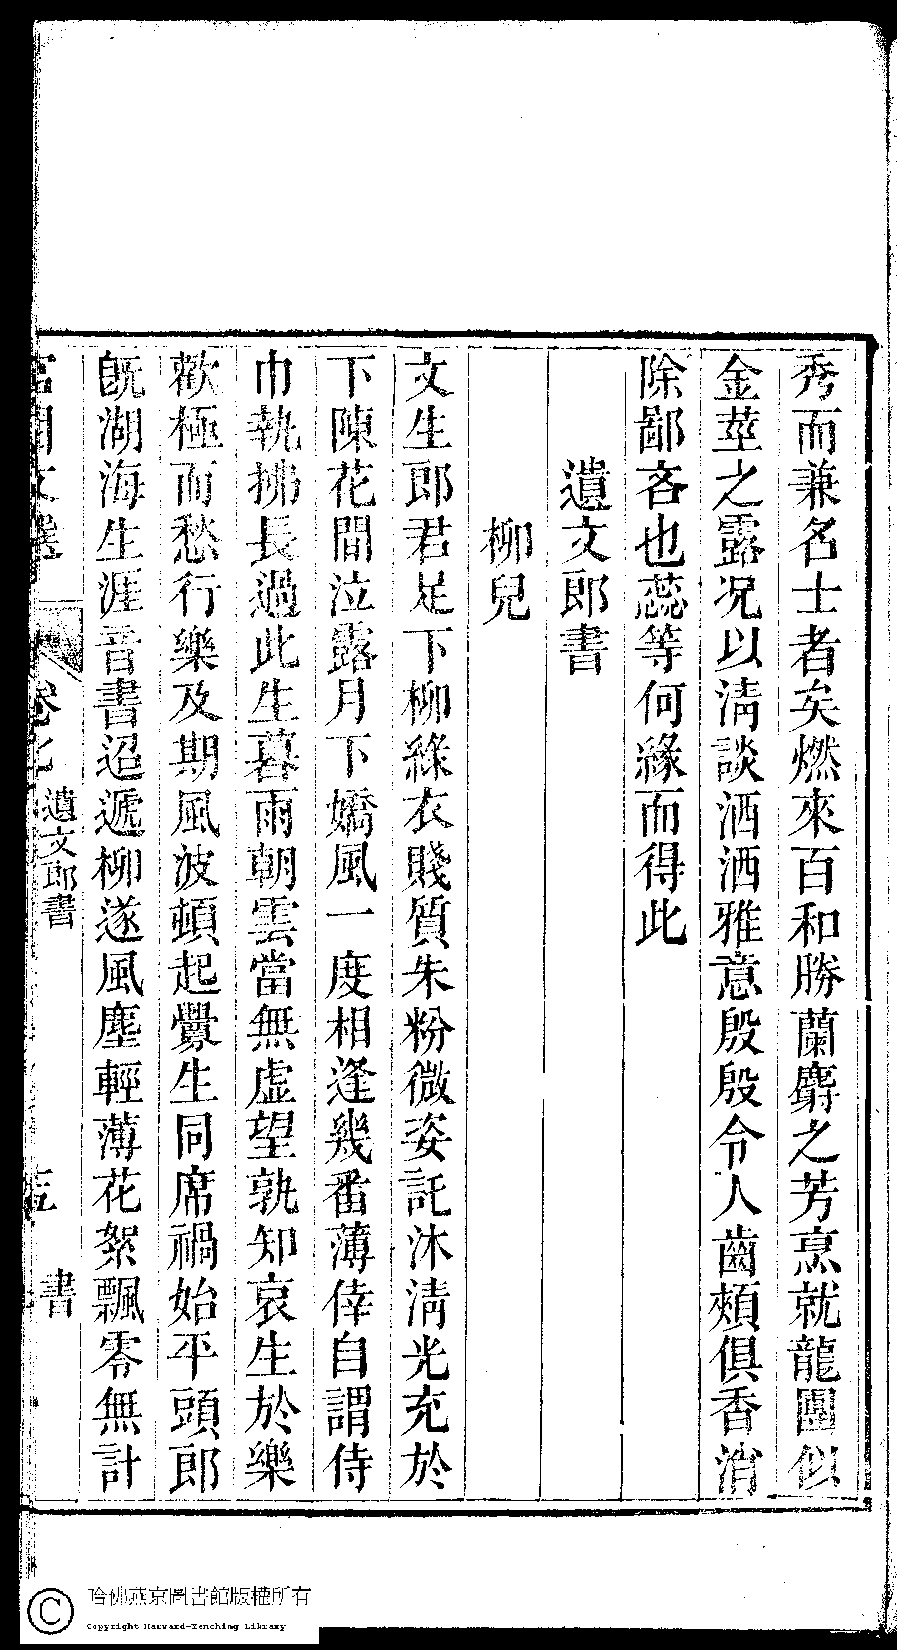 秀而兼名士者矣燃來百和勝蘭麝之芳烹就龍團似
金莖之露况以淸談洒洒雅意殷殷令人齒頰俱香消
除鄙吝也蕊等何緣而得此
遺文郎書
柳兒
文生郎君足下柳綠衣賤質朱粉微姿託沐淸光充於
下陳花間泣露月下嬌風一度相逢幾番薄倖自謂侍
巾執拂長過此生暮雨朝雲當無虛望孰知哀生於樂
歡極而愁行樂及期風波頓起釁生同席禍始平頭郎
旣湖海生涯音書迢遞柳遂風塵輕薄花絮飄零無計
宮閨文選
卷七
遺文郎書
書
哈佛燕京圖書館版權所有
Copyright Harvard-Yenching Library